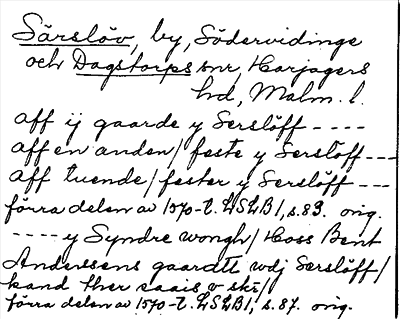 Särslöv, by, Södervidinge
och Dagstorps snr, Harjagers
hd, Malm. l.
aff ij gaarde y Serslöff ----
aff en anden / feste y Serslöff ---
aff tuende / fester y Serslöff ----
förra delen av 1570-t. LSLB 1, s. 83. orig.
---- y Syndre wongh / Hoss Bent
Andersens gaardtt wdj Serslöff /
kand ther saais v skr /
förra delen av 1570-t. LSLB 1, s. 87. orig.